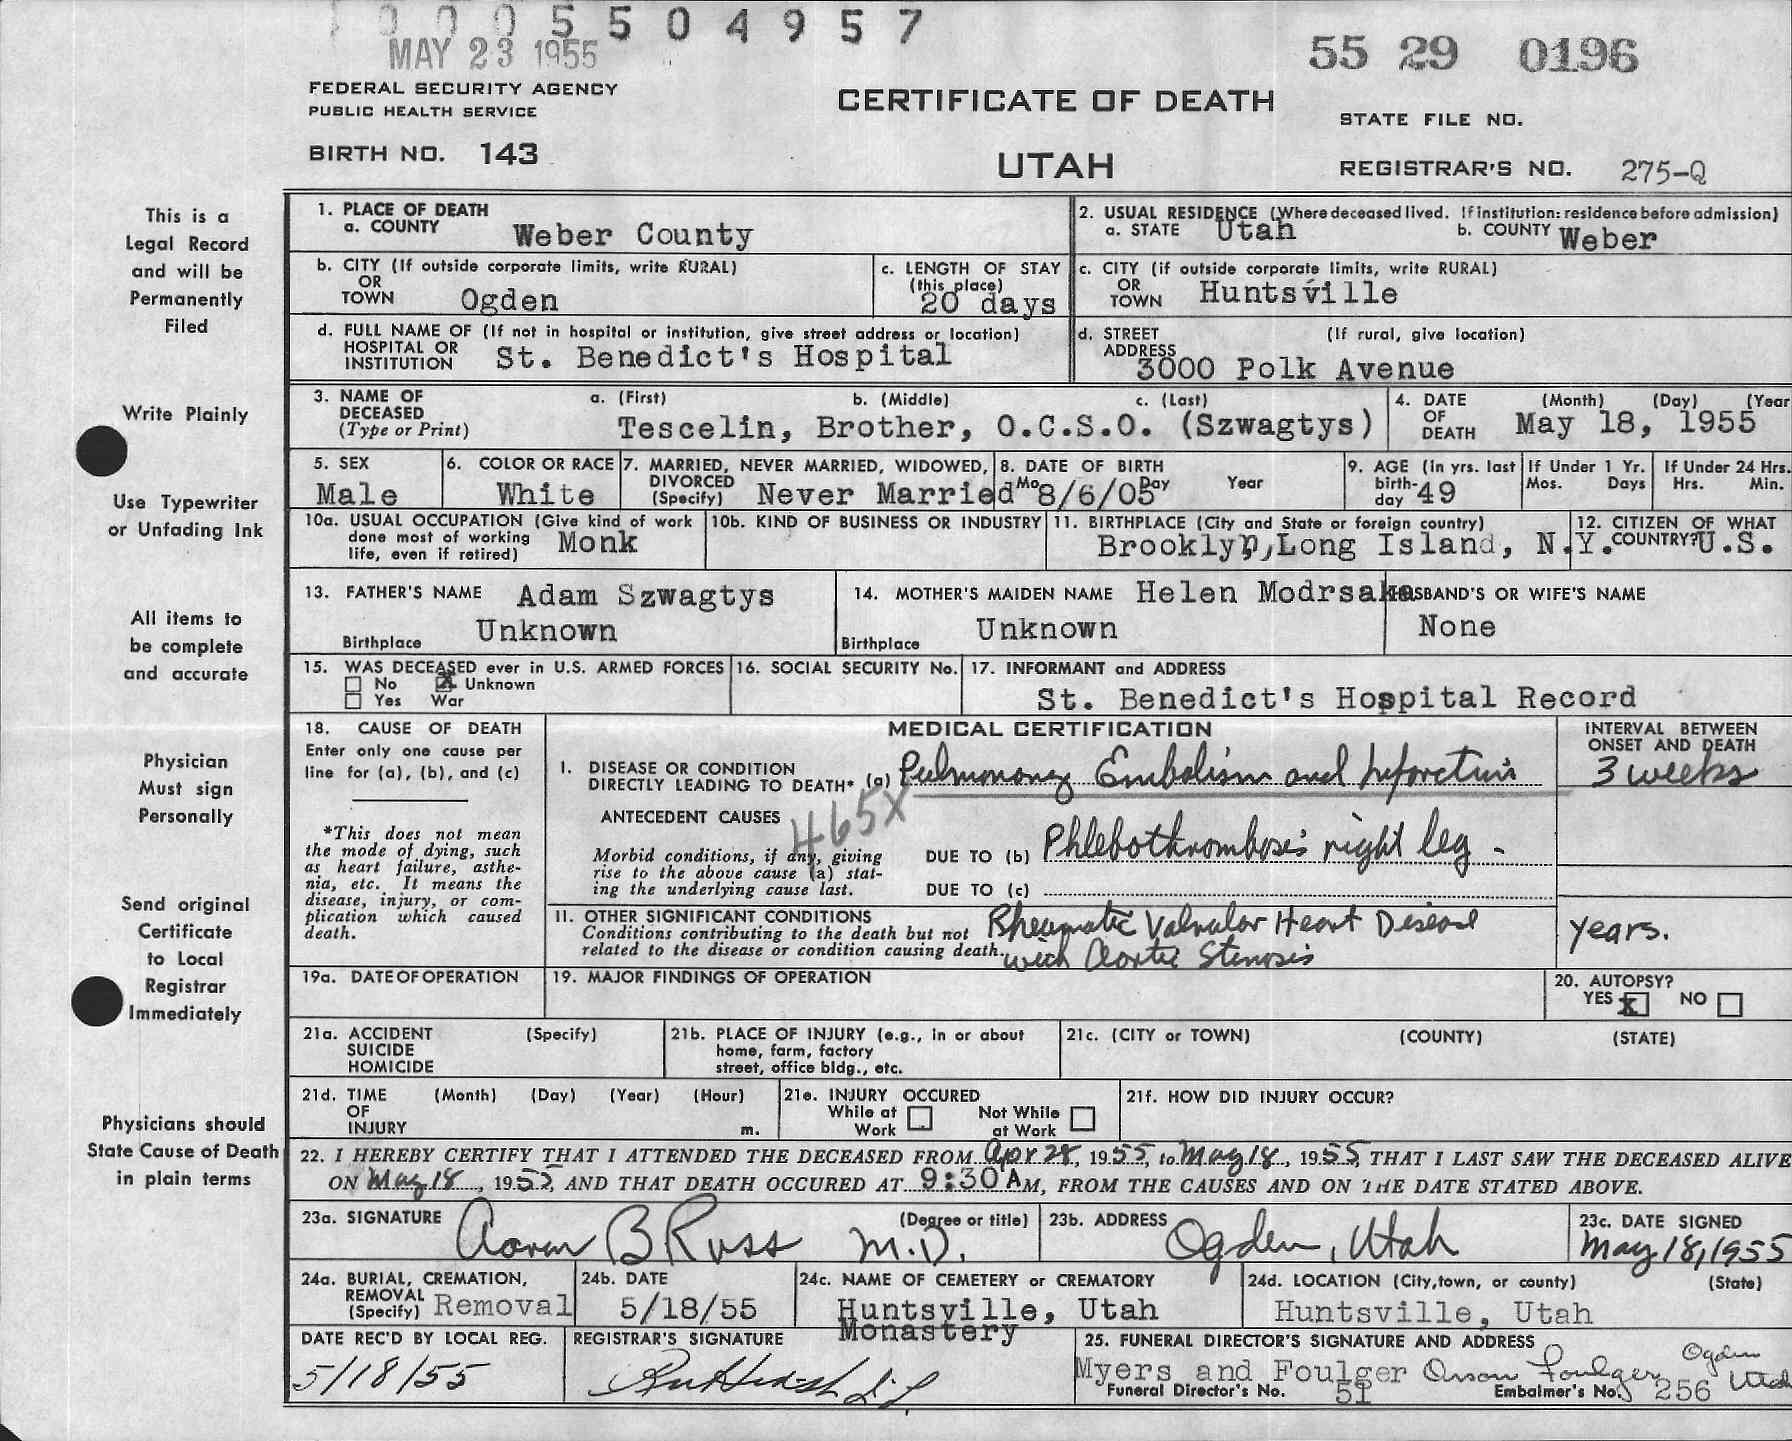 0005504957
MAY 23 1955
55 29 0196
FEDERAL SECURITY AGENCY
PUBLIC HEALTH SERVICE
CERTIFICATE OF DEATH
STATE FILE NO.
BIRTH NO. 143
UTAH
REGISTRAR'S NO. 275-Q
This is a
Legal Record
and will be
Permanently
Filed
Write Plainly
Use Typewriter
or Unfading Ink
All items to
be complete
and accurate
Physician
Must sign
Personally
Send original
Certificate
to Local
Registrar
Immediately
Physicians should
State Cause of Death
in plain terms
1. PLACE OF DEATH
a. COUNTY Weber County
2. USUAL RESIDENCE (Where deceased lived. If institution: residence before admission)
a. STATE Utah b. COUNTY Weber
b. CITY (If outside corporate limits, write RURAL)
OR
TOWN Ogden
c. LENGTH OF STAY
(this place)
20 days
c. CITY (if outside corporate limits, write RURAL)
OR
TOWN Huntsville
d. FULL NAME OF (If not in hospital or institution, give street address or location)
HOSPITAL OR
INSTITUTION St. Benedict's Hospital
d. STREET (If rural, give location)
ADDRESS
3000 Polk Avenue
3. NAME OF a. (First) b. (Middle) c. (Last)
DECEASED
(Type or Print) Tescelin, Brother, O.C.S.O. (Szwagtys)
4. DATE (Month) (Day) (Year
OF
DEATH May 18, 1955
5. SEX
Male
6. COLOR OR RACE
White
7. MARRIED, NEVER MARRIED, WIDOWED,
DIVORCED
(Specify) Never Married
8. DATE OF BIRTH
Mo Day Year
8/6/05
9. AGE (In yrs. last
birth-
day 49
If Under 1 Yr.
Mos. Days
If Under 24 Hrs.
Hrs. Min.
10a. USUAL OCCUPATION (Give kind of work
done most of working
life, even if retired) Monk
10b. KIND OF BUSINESS OR INDUSTRY
11. BIRTHPLACE (City and State or foreign country)
Brooklyn, Long Island, N.Y.
12. CITIZEN OF WHAT
COUNTRY? U.S.
13. FATHER'S NAME Adam Szwagtys
Birthplace Unknown
14. MOTHER'S MAIDEN NAME Helen Modrsaka
Birthplace Unknown
HUSBAND'S OR WIFE'S NAME
None
15. WAS DECEASED ever in U.S. ARMED FORCES
No X Unknown
Yes War
16. SOCIAL SECURITY No.
17. INFORMANT and ADDRESS
St. Benedict's Hospital Record
18. CAUSE OF DEATH
Enter only one cause per
line for (a), (b), and (c)
*This does not mean
the mode of dying, such
as heart failure, asthe-
nia, etc. It means the
disease, injury, or com-
plication which caused
death.
MEDICAL CERTIFICATION
INTERVAL BETWEEN
ONSET AND DEATH
I. DISEASE OR CONDITION
DIRECTLY LEADING TO DEATH* (a) Pulmonary Embolism and Infarction 3 weeks
ANTECEDENT CAUSES 465X
Morbid conditions, if any, giving
rise to the above cause (a) stat-
ing the underlying cause last.
DUE TO (b) Phlebothrombosis right leg -
DUE TO (c)
II. OTHER SIGNIFICANT CONDITIONS
Conditions contributing to the death but not
related to the disease or condition causing death.
Rheumatic Valvular Heart Disease
with Aortic Stenosis
years.
19a. DATE OF OPERATION
19. MAJOR FINDINGS OF OPERATION
20. AUTOPSY?
YES X NO
21a. ACCIDENT (Specify)
SUICIDE
HOMICIDE
21b. PLACE OF INJURY (e.g., in or about
home, farm, factory
street, office bldg., etc.
21c. (CITY or TOWN) (COUNTY) (STATE)
21d. TIME (Month) (Day) (Year) (Hour)
OF
INJURY m.
21e. INJURY OCCURED
While at Not While
Work at Work
21f. HOW DID INJURY OCCUR?
22. I HEREBY CERTIFY THAT I ATTENDED THE DECEASED FROM Apr 28, 1955, to May 18, 1955, THAT I LAST SAW THE DECEASED ALIVE
ON May 18, 1955, AND THAT DEATH OCCURED AT 9:30 AM, FROM THE CAUSES AND ON THE DATE STATED ABOVE.
23a. SIGNATURE (Degree or title)
Aaron B Ross M.D.
23b. ADDRESS
Ogden, Utah
23c. DATE SIGNED
May 18, 1955
24a. BURIAL, CREMATION,
REMOVAL
(Specify) Removal
24b. DATE
5/18/55
24c. NAME OF CEMETERY or CREMATORY
Huntsville, Utah
Monastery
24d. LOCATION (City, town, or county) (State)
Huntsville, Utah
DATE REC'D BY LOCAL REG.
5/18/55
REGISTRAR'S SIGNATURE
25. FUNERAL DIRECTOR'S SIGNATURE AND ADDRESS
Myers and Foulger Orson Foulger Ogden Utah
Funeral Director's No. 51 Embalmer's No. 256